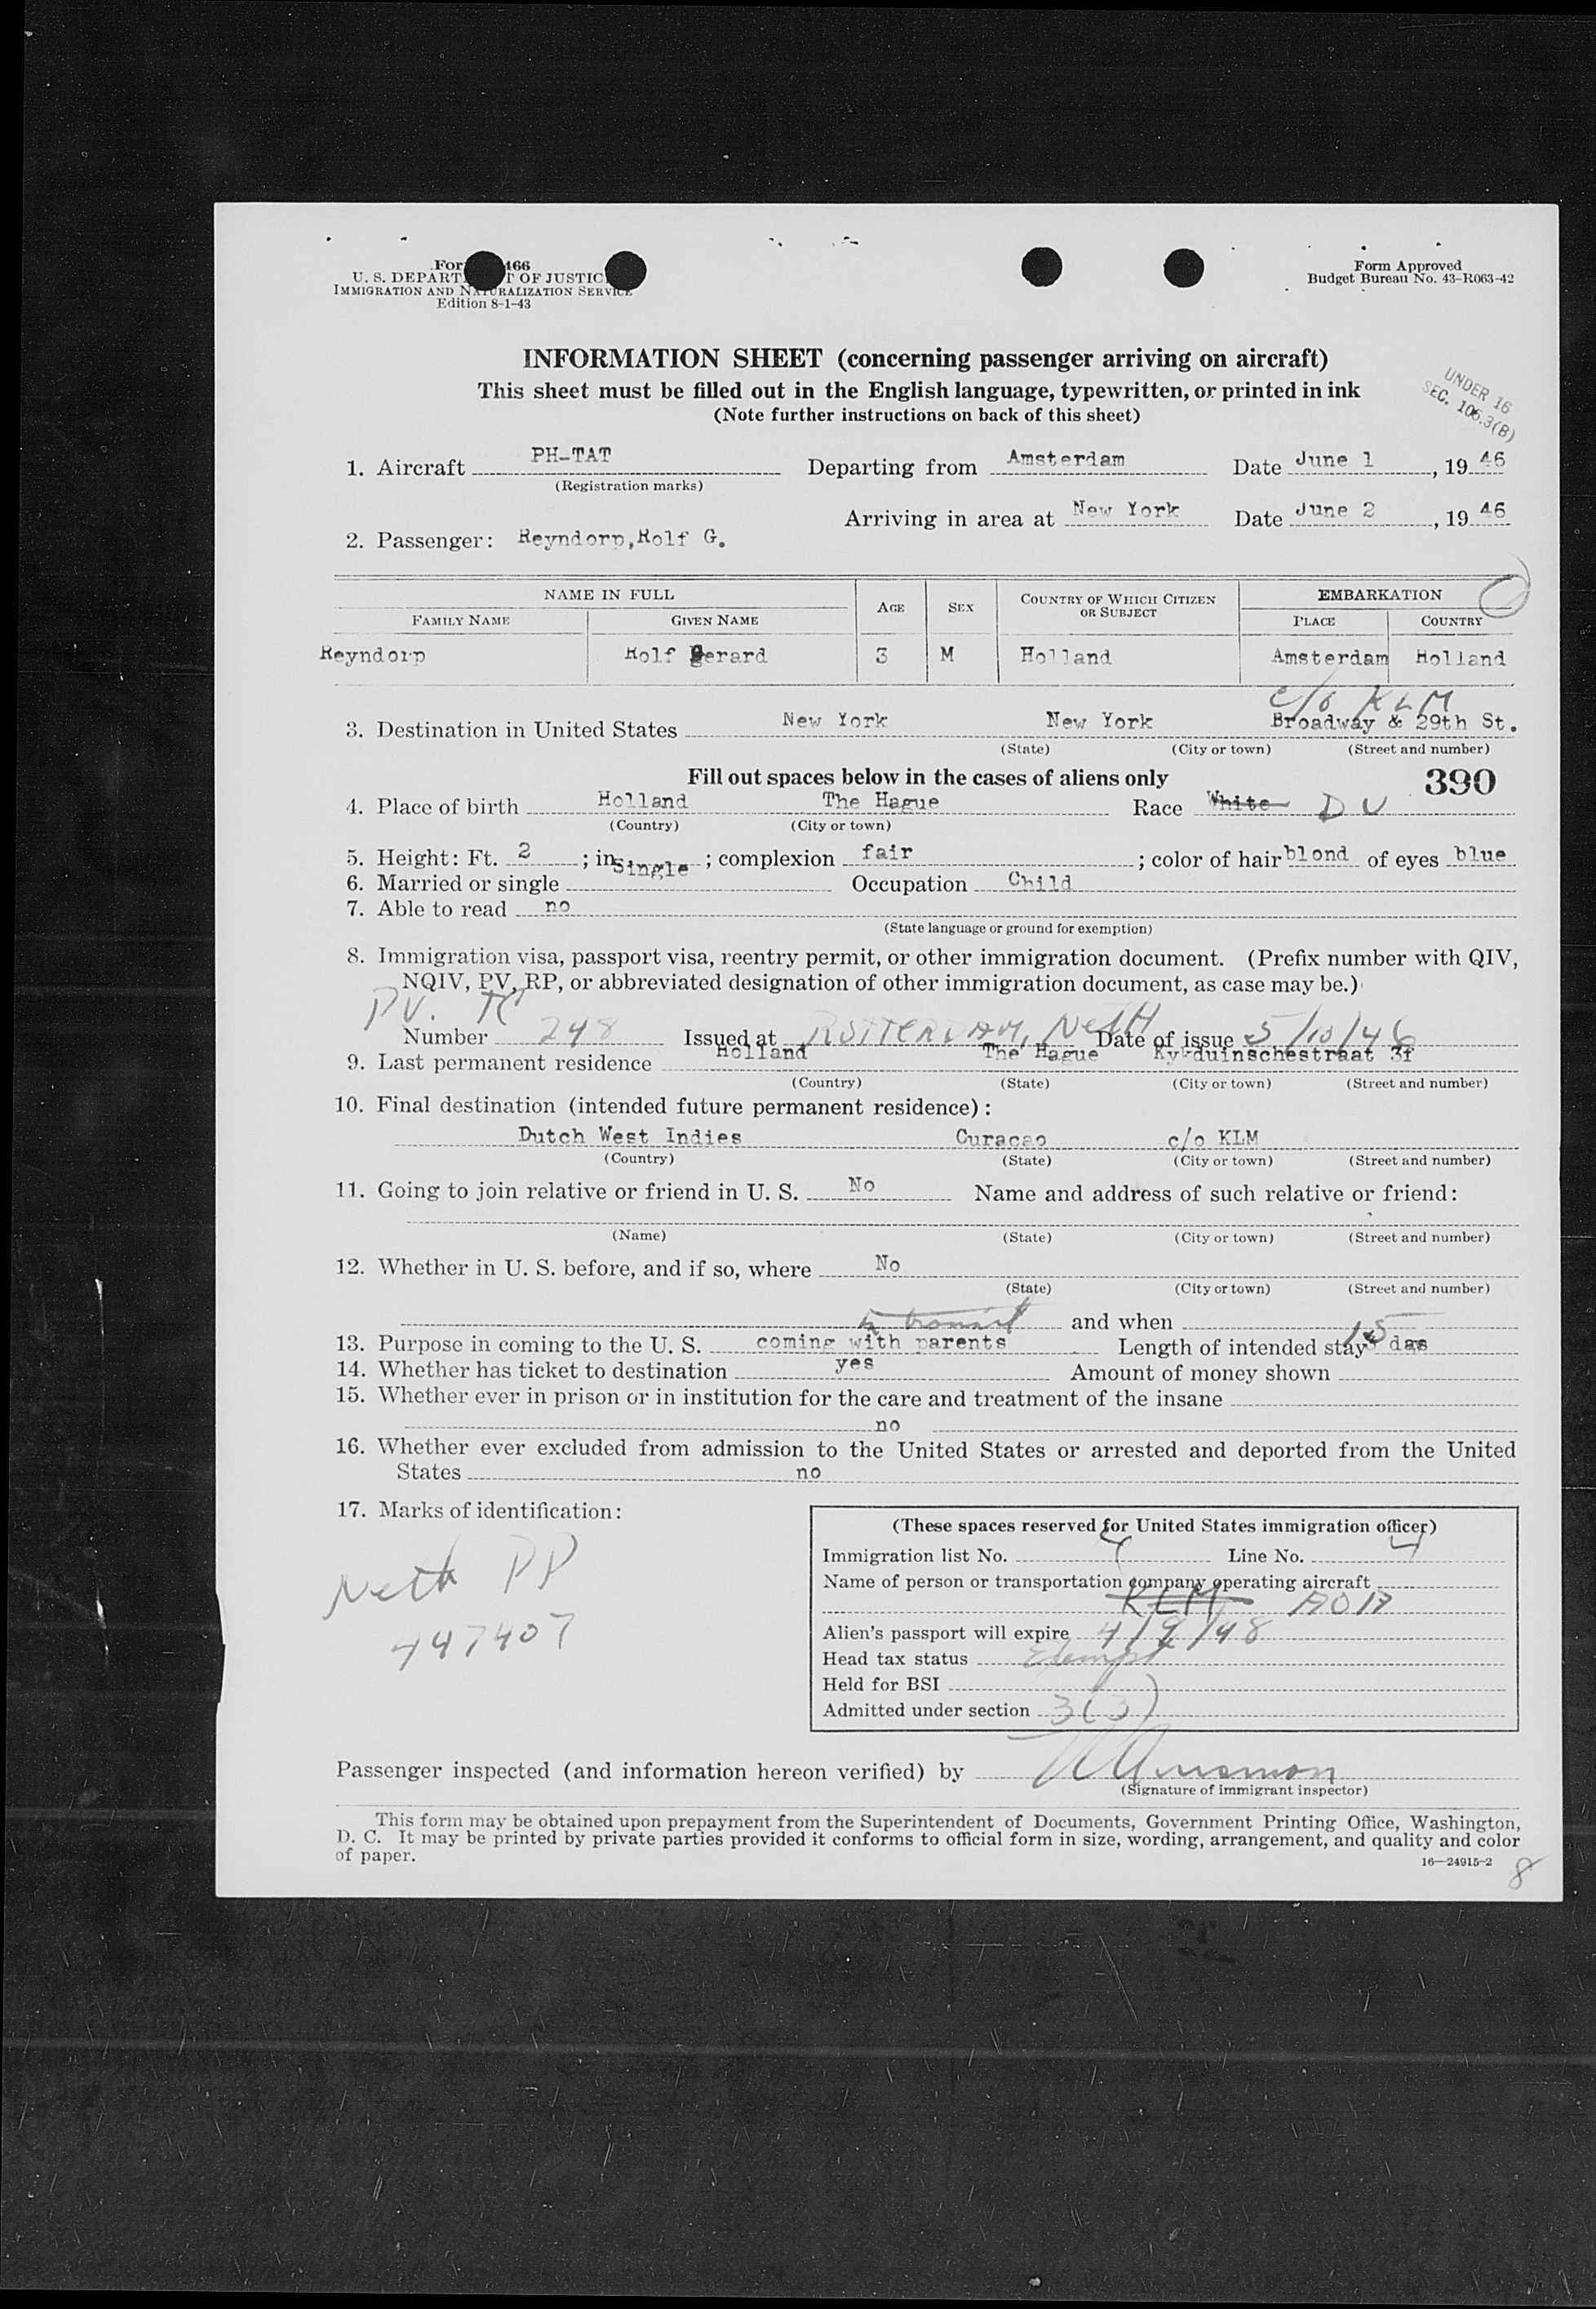 For 466
U. S. DEPART T OF JUSTIC
IMMIGRATION AND NATURALIZATION SERVICE
Edition 8-1-43
Form Approved
Budget Bureau No. 43-R063-42
INFORMATION SHEET (concerning passenger arriving on aircraft)
This sheet must be filled out in the English language, typewritten, or printed in ink
(Note further instructions on back of this sheet)
UNDER 16
SEC. 106.3(B)
1. Aircraft PH-TAT Departing from Amsterdam Date June 1, 1946
(Registration marks)
Arriving in area at New York Date June 2, 1946
2. Passenger: Reyndorp, Rolf G.
NAME IN FULL AGE SEX COUNTRY OF WHICH CITIZEN OR SUBJECT EMBARKATION
FAMILY NAME GIVEN NAME PLACE COUNTRY
Reyndorp Rolf Gerard 3 M Holland Amsterdam Holland
c/o KLM
3. Destination in United States New York New York Broadway & 29th St.
(State) (City or town) (Street and number)
Fill out spaces below in the cases of aliens only 390
4. Place of birth Holland The Hague Race White DU
(Country) (City or town)
5. Height: Ft. 2 ; in. ; complexion fair ; color of hair blond of eyes blue
6. Married or single Single Occupation Child
7. Able to read no
(State language or ground for exemption)
8. Immigration visa, passport visa, reentry permit, or other immigration document. (Prefix number with QIV,
NQIV, PV, RP, or abbreviated designation of other immigration document, as case may be.)
PV. TC
Number 248 Issued at ROTTERDAM, NETH Date of issue 5/10/46
9. Last permanent residence Holland The Hague Kykduinschestraat 31
(Country) (State) (City or town) (Street and number)
10. Final destination (intended future permanent residence):
Dutch West Indies Curacao c/o KLM
(Country) (State) (City or town) (Street and number)
11. Going to join relative or friend in U. S. No Name and address of such relative or friend:
(Name) (State) (City or town) (Street and number)
12. Whether in U. S. before, and if so, where No
(State) (City or town) (Street and number)
in transit and when
13. Purpose in coming to the U. S. coming with parents Length of intended stay 15 das
14. Whether has ticket to destination yes Amount of money shown
15. Whether ever in prison or in institution for the care and treatment of the insane
no
16. Whether ever excluded from admission to the United States or arrested and deported from the United
States no
17. Marks of identification:
Neth PP
447407
(These spaces reserved for United States immigration officer)
Immigration list No. 4 Line No. 4
Name of person or transportation company operating aircraft
KLM AOA
Alien's passport will expire 4/9/48
Head tax status Exempt
Held for BSI
Admitted under section 3(3)
Passenger inspected (and information hereon verified) by
(Signature of immigrant inspector)
This form may be obtained upon prepayment from the Superintendent of Documents, Government Printing Office, Washington,
D. C. It may be printed by private parties provided it conforms to official form in size, wording, arrangement, and quality and color
of paper.
16—24915-2
8